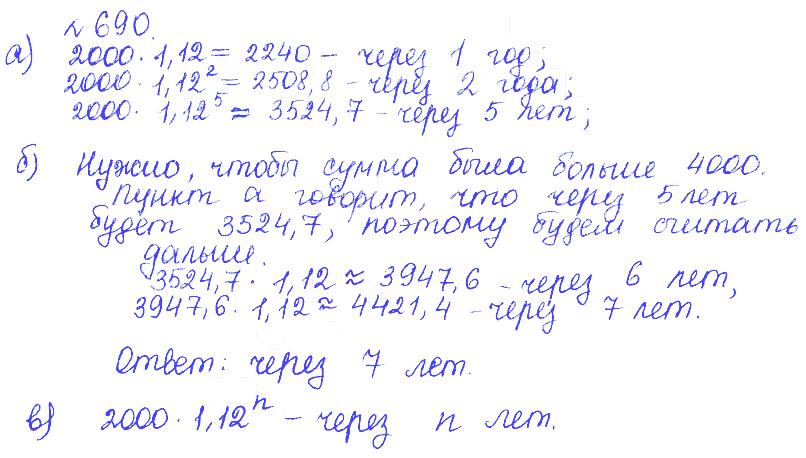 № 690.
а) 2000 · 1,12 = 2240 – через 1 год;
2000 · 1,12² = 2508,8 – через 2 года;
2000 · 1,12⁵ ≈ 3524,7 – через 5 лет;
б) Нужно, чтобы сумма была больше 4000.
Пункт а говорит, что через 5 лет
будет 3524,7, поэтому будем считать
дальше.
3524,7 · 1,12 ≈ 3947,6 – через 6 лет,
3947,6 · 1,12 ≈ 4421,4 – через 7 лет.
Ответ: через 7 лет.
в) 2000 · 1,12ⁿ – через n лет.